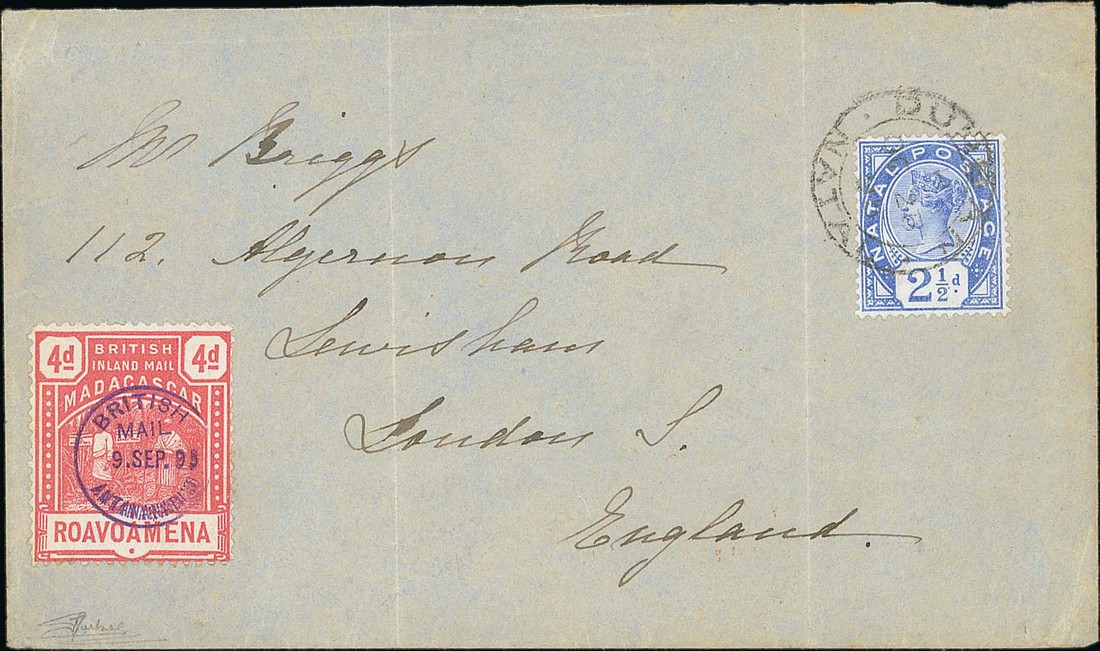 Mr Briggs
112. Algernon Road
Lewisham
London S.
England.
NATAL POSTAGE
2 1/2 d.
DURBAN NATAL
4d BRITISH 4d
INLAND MAIL
MADAGASCAR
BRITISH
MAIL
9.SEP.95
ANTANANARIVO
ROAVOAMENA